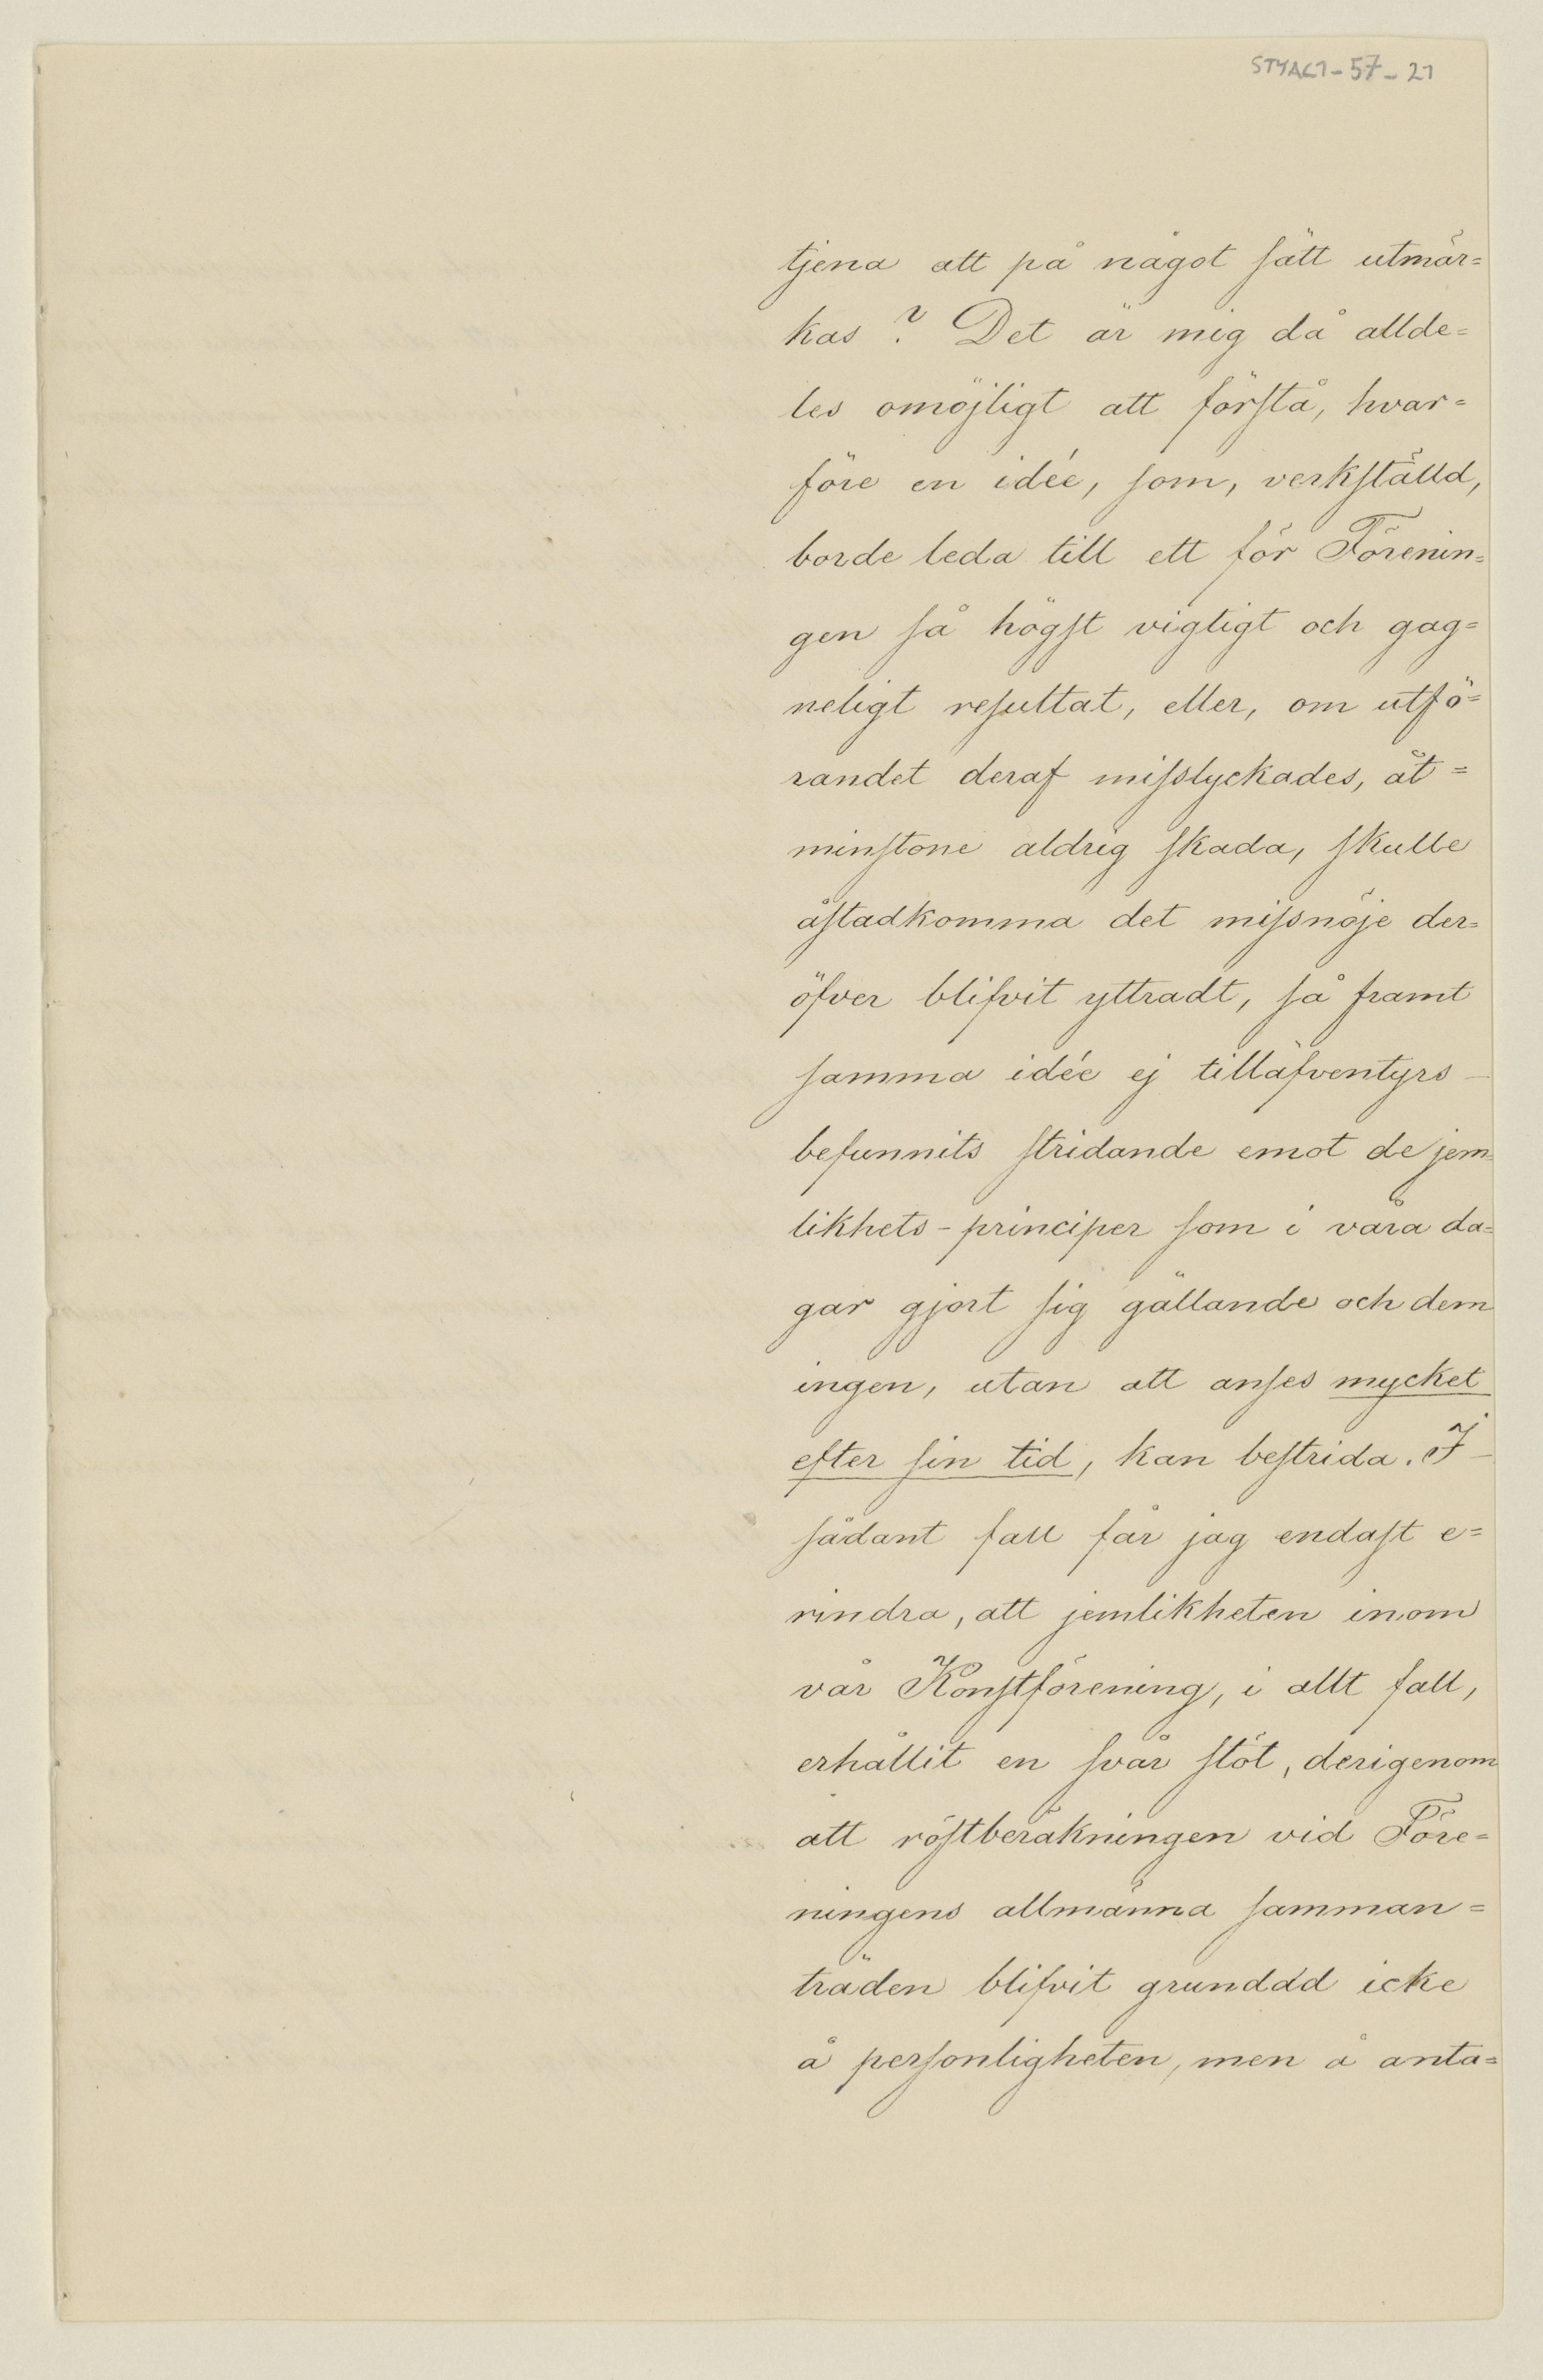 STYAC1-57-21
tjena att på något sätt utmär=
kas? Det är mig då allde=
les omöjligt att förstå, hvar=
före en idée, som, verkställd,
borde leda till ett för Förenin=
gen så högst vigtigt och gag=
neligt resultat, eller, om utfö=
randet deraf misslyckades, åt=
minstone aldrig skada, skulle
åstadkomma det missnöje der=
öfver blifvit yttradt, så framt
samma idée ej tilläfventyrs
befunnits stridande emot de jem=
likhets-principer som i våra da=
gar gjort sig gällande och dem
ingen, utan att anses mycket
efter sin tid, kan bestrida. I
sådant fall får jag endast e=
rindra, att jemlikheten inom
vår Konstförening, i allt fall,
erhållit en svår stöt, derigenom
att röstberäkningen vid Före=
ningens allmänna samman=
träden blifvit grundad icke
å personligheten, men å anta=